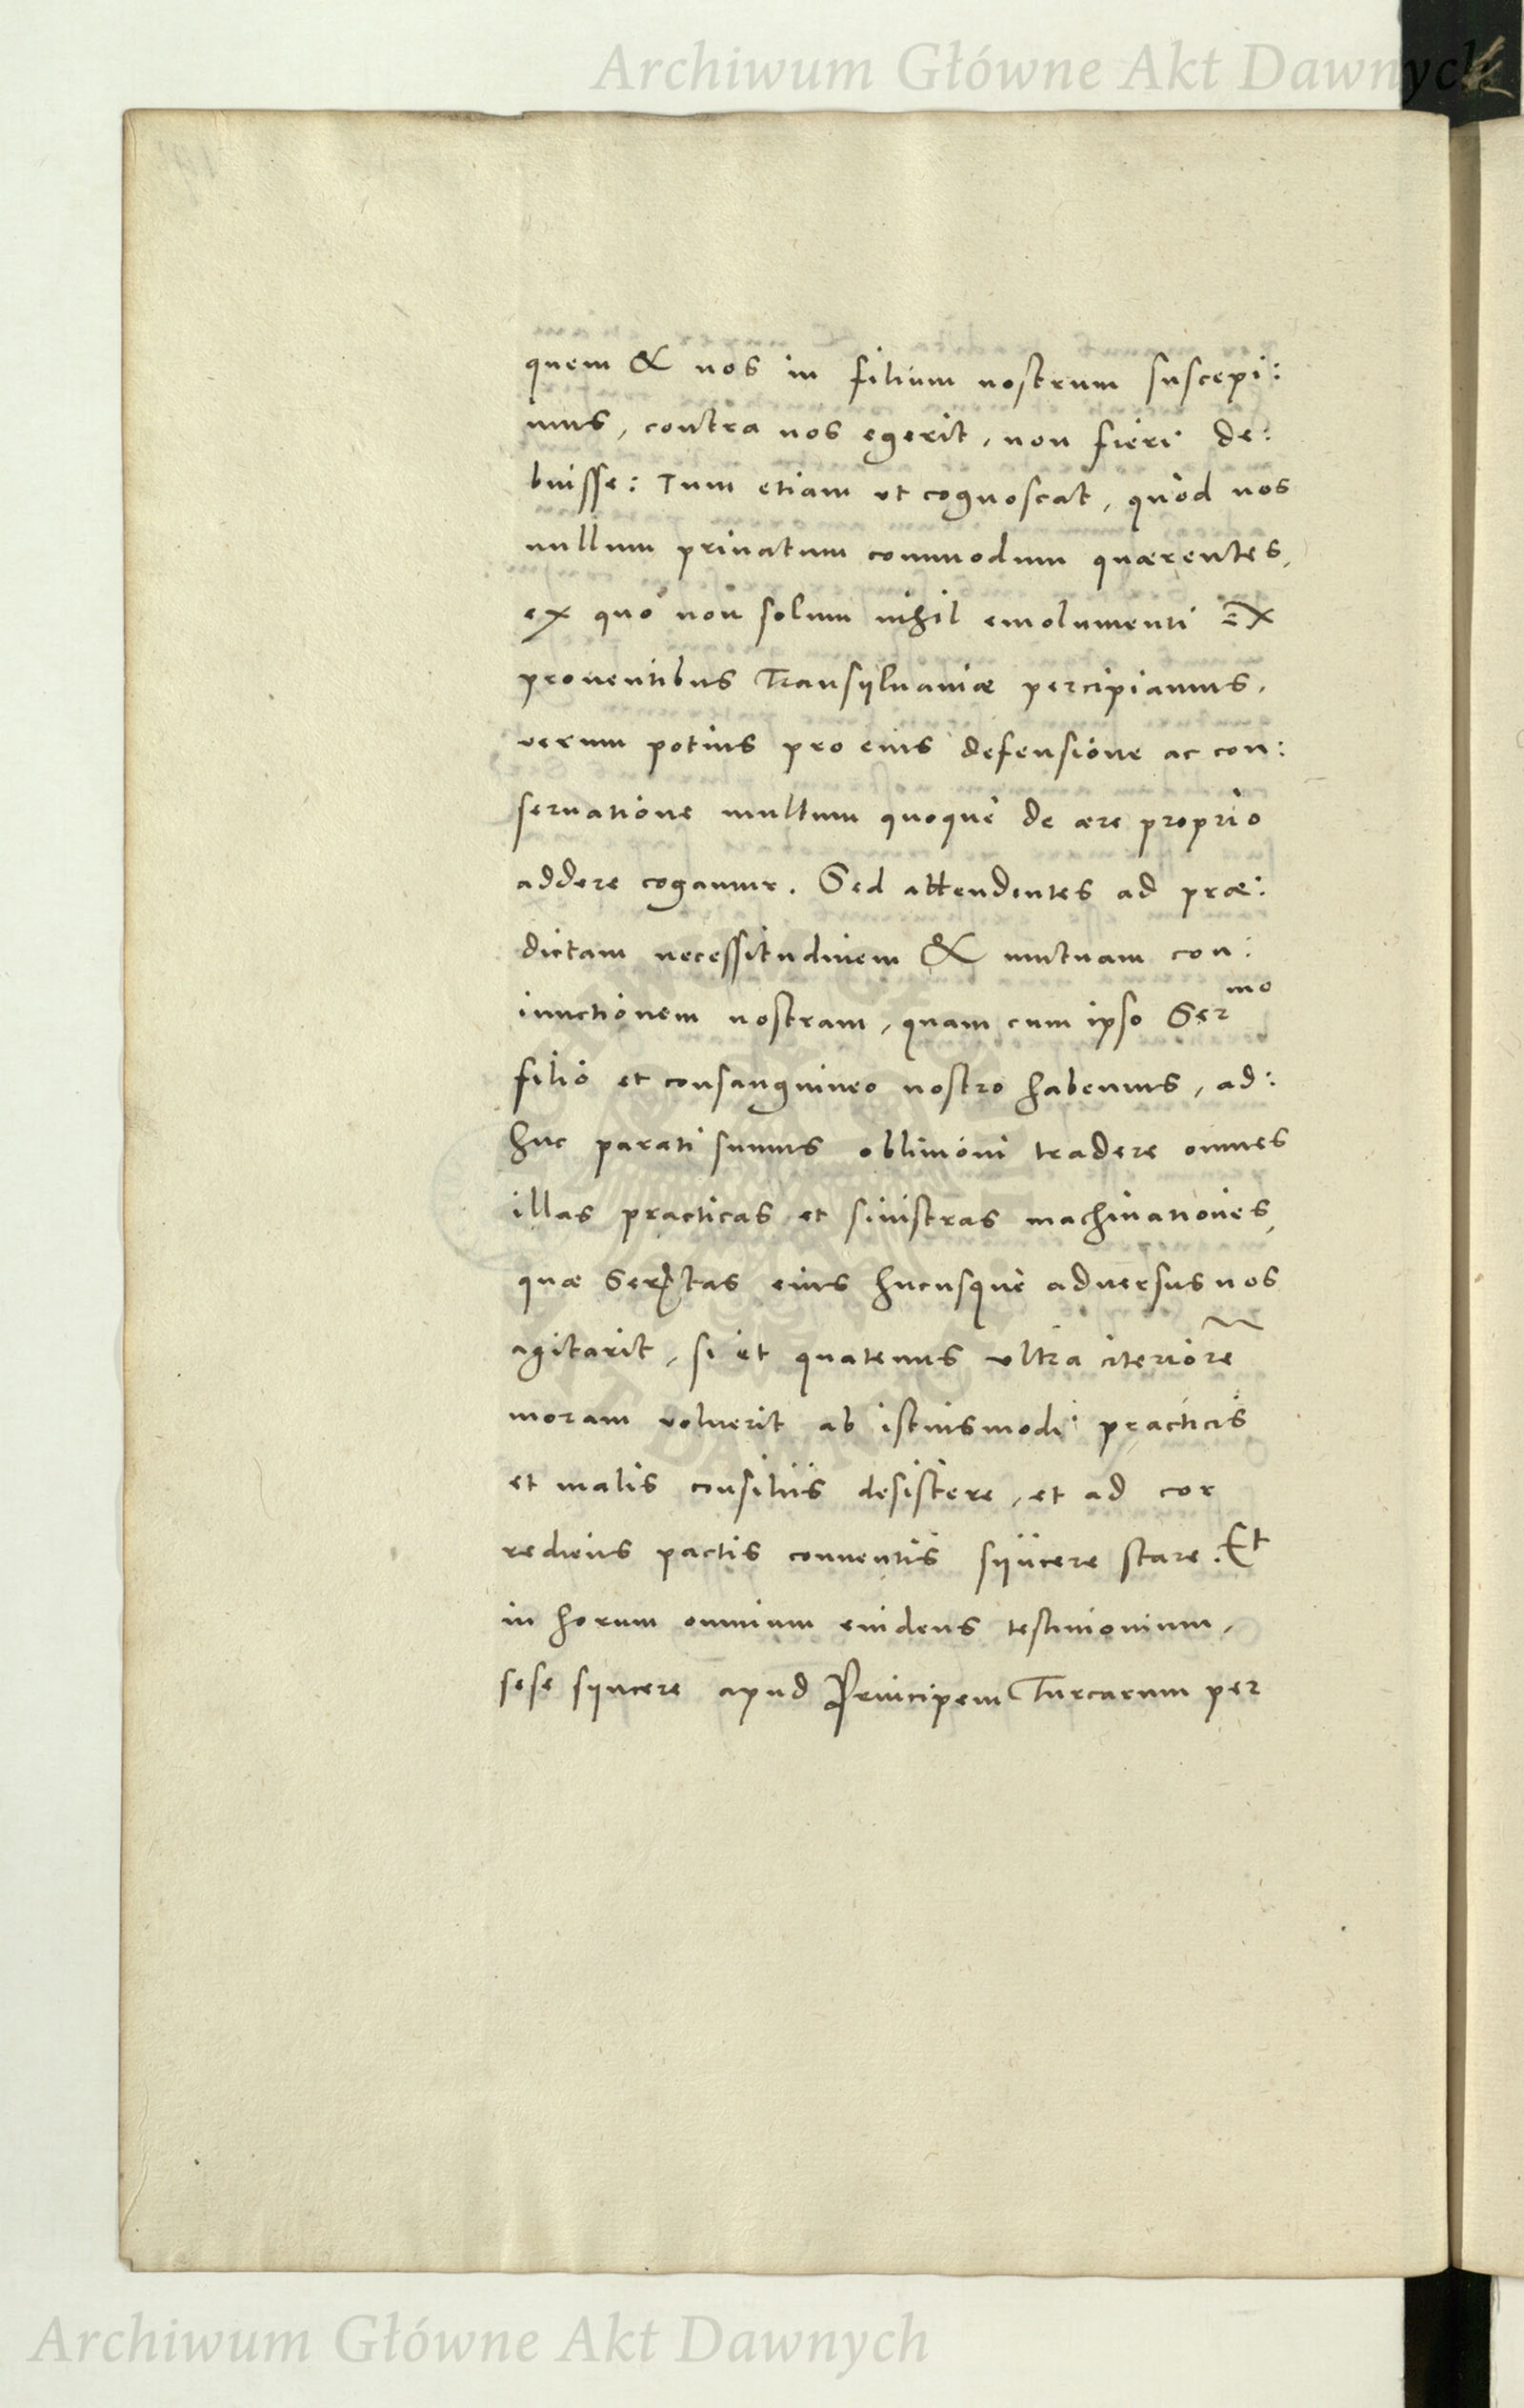 Archiwum Główne Akt Dawnych
quem & nos in filium nostrum suscepi:
mus, contra nos egerit, non fieri de:
buisse: Tum etiam ut cognoscat, quod nos
nullum priuatum commodum quærentes,
ex quo non solum nihil emolumenti ex
prouentibus Transylvaniæ percipiamus,
verum potius pro eius defensione ac con:
seruatione multum quoque de ære proprio
addere cogamur. Sed attendentes ad præ:
dictam necessitudinem & mutuam con:
iunctionem nostram, quam cum ipso Ser^mo
filio et consanguineo nostro habemus, ad:
huc parati sumus obliuioni tradere omnes
illas practicas et sinistras machinationes,
quæ Sertas eius hucusque aduersus nos
agitarit, si et quatenus ultra citeriore
moram voluerit ab istiusmodi practicis
et malis consiliis desistere, et ad cor
rediens pactis conuentis syncere stare. Et
in horum omnium euidens testimonium,
sese syncere apud Principem Turcarum per
Archiwum Główne Akt Dawnych